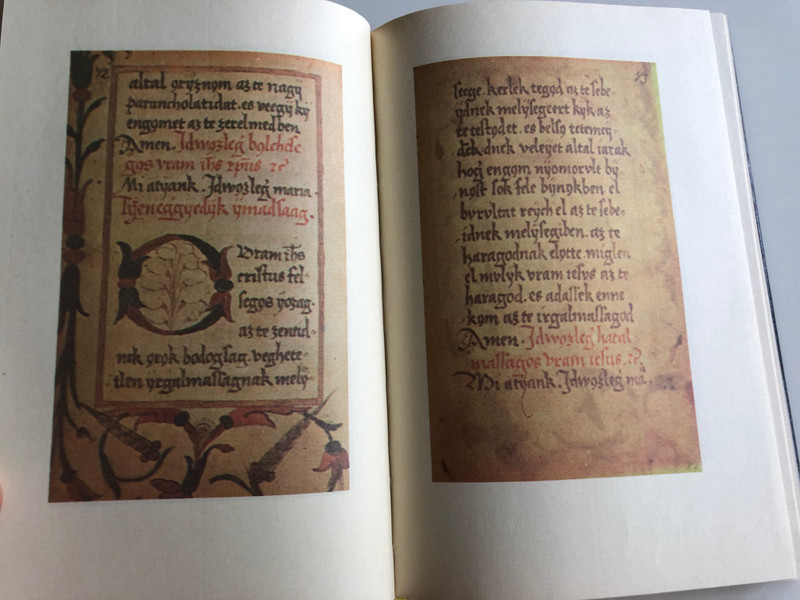 12
altal oryznom az te nagÿ
parancholatidat. es veegÿ kÿ
engomet az te zerelmedben
Amen. Jdwozleg bolchde
gos vram ihs xpūs ꝛc̄
Mi atyank. Jdwozleg maria.
Tÿzeneggÿedÿk ÿmadsaag.
O Vram ihs
cristus fel-
segos ÿozag.
az te zentid-
nak orok bodogsag. veghete-
tlen yrgalmassagnak mely-
seege. kerlek tegod az te sebe-
ydnek melÿsegeert kyk az
te testodet. es belso tetemeÿ-
dnek veleyet altal iarak
hog engom nÿomorvlt bÿ
nost sok fele bÿnykben el
bvrvltat reych el az te sebe-
idnek melÿsegiben. az te
haragodnak elotte. miglen
el mvlyk vram iesus az te
haragod. es adassek enne
kom az te irgalmassagod
Amen. Jdwozleg hatal
massagos vram iesus. ꝛc̄.
Mi atyank. Jdwozleg ma.